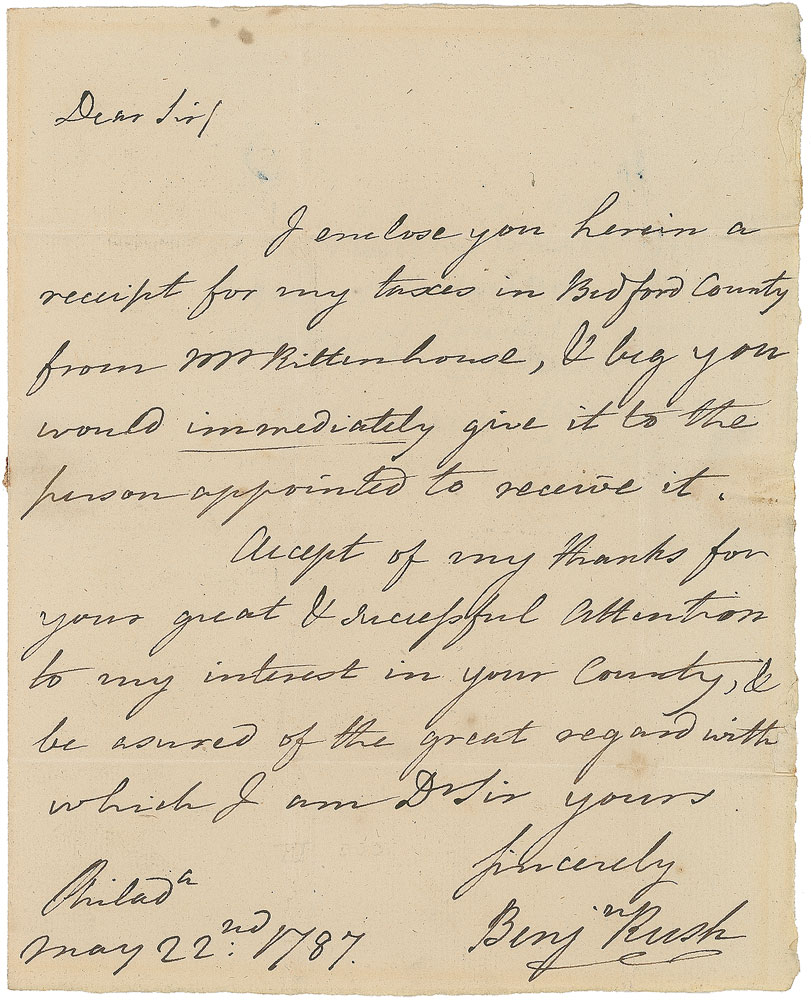 Dear Sir/
I enclose you herein a
receipt for my taxes in Bedford County
from Mr Rittenhouse, & beg you
would immediately give it to the
person appointed to receive it.
Accept of my thanks for
your great & successful attention
to my interest in your County, &
be asured of the great regard with
which I am Dr Sir yours
sincerely
Benjn Rush
Philada
May 22nd: 1787.